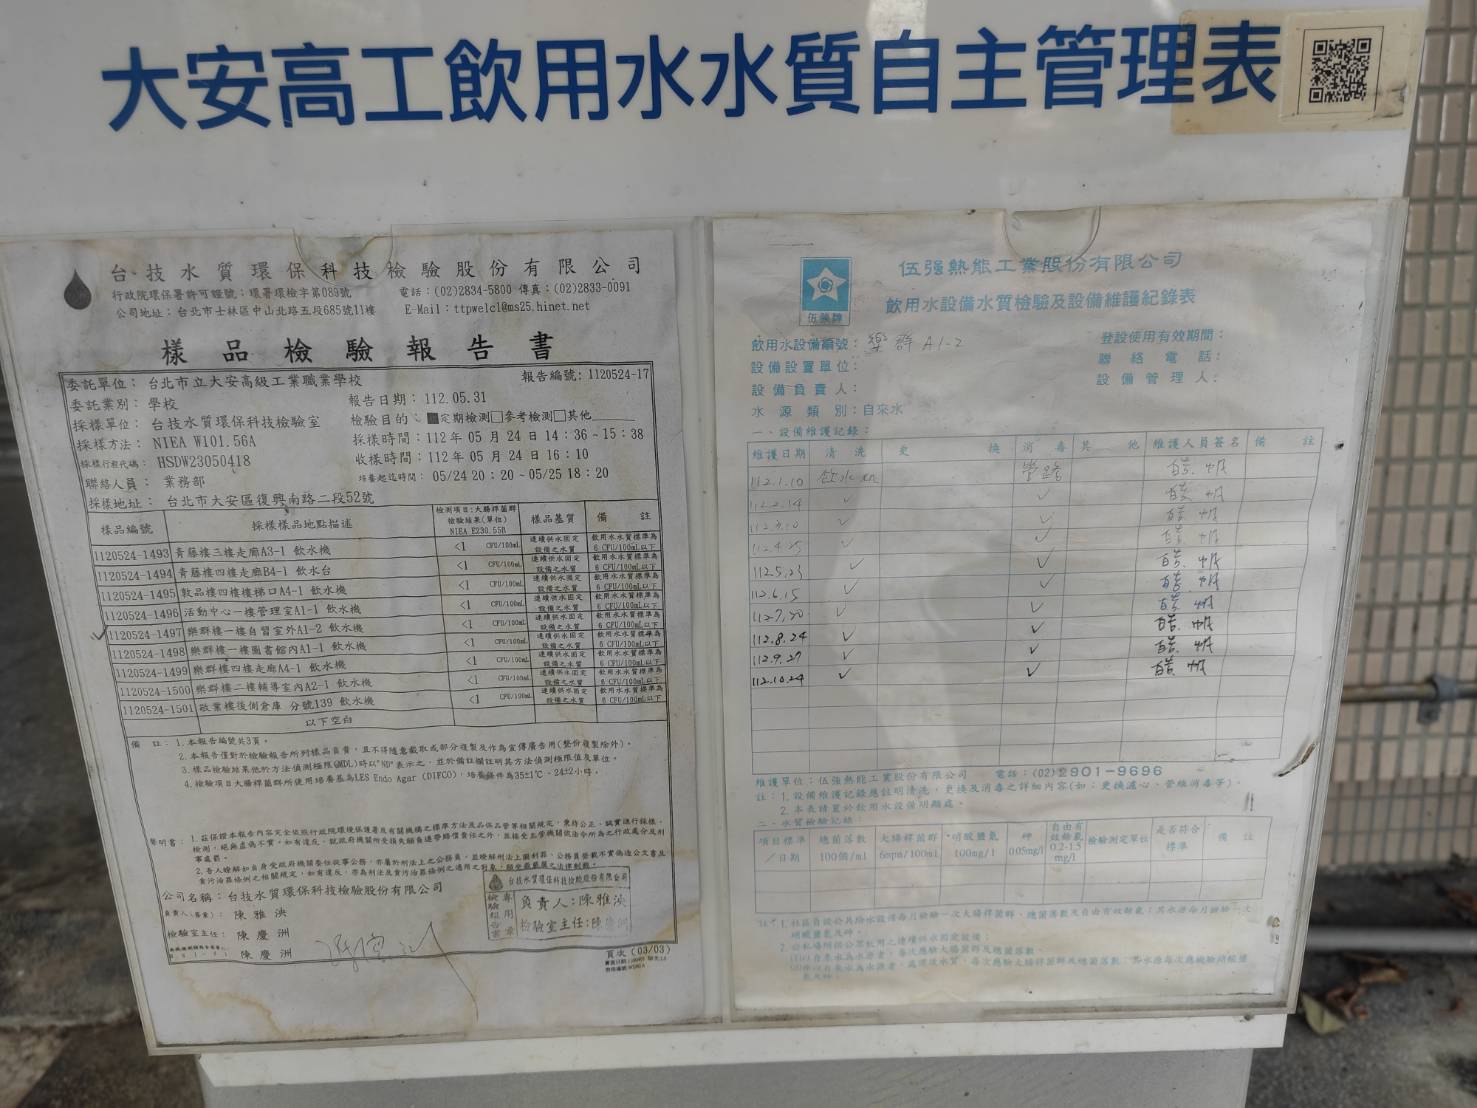 大安高工飲用水水質自主管理表
台技水質環保科技檢驗股份有限公司
行政院環保署許可證號：環署環檢字第089號 電話：(02)2834-5800 傳真：(02)2833-0091
公司地址：台北市士林區中山北路五段685號11樓 E-Mail：ttpwelcl@ms25.hinet.net
樣品檢驗報告書
委託單位：台北市立大安高級工業職業學校 報告編號：1120524-17
委託業別：學校 報告日期：112.05.31
採樣單位：台技水質環保科技檢驗室 檢驗目的：■定期檢測□參考檢測□其他
採樣方法：NIEA W101.56A 採樣時間：112年05月24日14：36~15：38
採樣行程代碼：HSDW23050418 收樣時間：112年05月24日16：10
聯絡人員：業務部 培養起迄時間：05/24 20：20~05/25 18：20
採樣地址：台北市大安區復興南路二段52號
樣品編號 採樣樣品地點描述 檢測項目:大腸桿菌群 檢驗結果(單位) NIEA E230.55B 樣品基質 備註
1120524-1493 青藤樓三樓走廊A3-1 飲水機 <1 CFU/100mL 連續供水固定設備之水質 飲用水水質標準為6 CFU/100mL以下
1120524-1494 青藤樓四樓走廊B4-1 飲水台 <1 CFU/100mL 連續供水固定設備之水質 飲用水水質標準為6 CFU/100mL以下
1120524-1495 敦品樓四樓樓梯口A4-1 飲水機 <1 CFU/100mL 連續供水固定設備之水質 飲用水水質標準為6 CFU/100mL以下
1120524-1496 活動中心一樓管理室A1-1 飲水機 <1 CFU/100mL 連續供水固定設備之水質 飲用水水質標準為6 CFU/100mL以下
✓1120524-1497 樂群樓一樓自習室外A1-2 飲水機 <1 CFU/100mL 連續供水固定設備之水質 飲用水水質標準為6 CFU/100mL以下
1120524-1498 樂群樓一樓圖書館內A1-1 飲水機 <1 CFU/100mL 連續供水固定設備之水質 飲用水水質標準為6 CFU/100mL以下
1120524-1499 樂群樓四樓走廊A4-1 飲水機 <1 CFU/100mL 連續供水固定設備之水質 飲用水水質標準為6 CFU/100mL以下
1120524-1500 樂群樓二樓輔導室內A2-1 飲水機 <1 CFU/100mL 連續供水固定設備之水質 飲用水水質標準為6 CFU/100mL以下
1120524-1501 敬業樓後側倉庫 分號139 飲水機 <1 CFU/100mL 連續供水固定設備之水質 飲用水水質標準為6 CFU/100mL以下
以下空白
備註：1.本報告編號共3頁。
2.本報告僅對於檢驗報告所列樣品負責，且不得隨意截取或部分複製及作為宣傳廣告用(整份複製除外)。
3.樣品檢驗結果低於方法偵測極限(MDL)時以"ND"表示之，並於備註欄註明其方法偵測極限值及單位。
4.檢驗項目大腸桿菌群所使用培養基為LES Endo Agar (DIFCO)，培養條件為35±1℃，24±2小時。
聲明書：1.茲保證本報告內容完全依照行政院環境保護署及有關機構之標準方法及品保品管等相關規定，秉持公正、誠實進行採樣、
檢測，絕無虛偽不實，如有違反，就政府機關所受損失願負連帶賠償責任之外，並接受主管機關依法令所為之行政處分及刑
事處罰。
公司名稱：台技水質環保科技檢驗股份有限公司
負責人(簽章)：陳雅泱
檢驗室主任：陳慶洲
陳慶洲
台技水質環保科技檢驗股份有限公司
檢驗報告專用章
負責人：陳雅泱
檢驗室主任：陳慶洲
頁次 (03/03)
伍強牌
伍強熱能工業股份有限公司
飲用水設備水質檢驗及設備維護紀錄表
飲用水設備編號：樂群A1-2 登設使用有效期間：
設備設置單位： 聯絡電話：
設備負責人： 設備管理人：
水源類別：自來水
一、設備維護記錄：
維護日期 清洗 更換 消毒 其他 維護人員簽名 備註
112.1.10 飲水機 管路
112.2.14 ✓ ✓
112.3.10 ✓ ✓
112.4.25 ✓ ✓
112.5.23 ✓ ✓
112.6.15 ✓ ✓
112.7.20 ✓ ✓
112.8.24 ✓ ✓
112.9.27 ✓ ✓
112.10.24 ✓ ✓
維護單位：伍強熱能工業股份有限公司 電話：(02)2901-9696
註：1.設備維護記錄應註明清洗，更換及消毒之詳細內容(如：更換濾心、管線消毒等)。
2.本表請置於飲用水設備明顯處。
二、水質檢驗記錄：
項目標準／日期 總菌落數 100個/ml 大腸桿菌群 6mpn/100ml 硝酸鹽氮 10.0mg/l 砷 0.05mg/l 自由有效餘氯 0.2-1.5 mg/l 檢驗測定單位 是否符合標準 備註